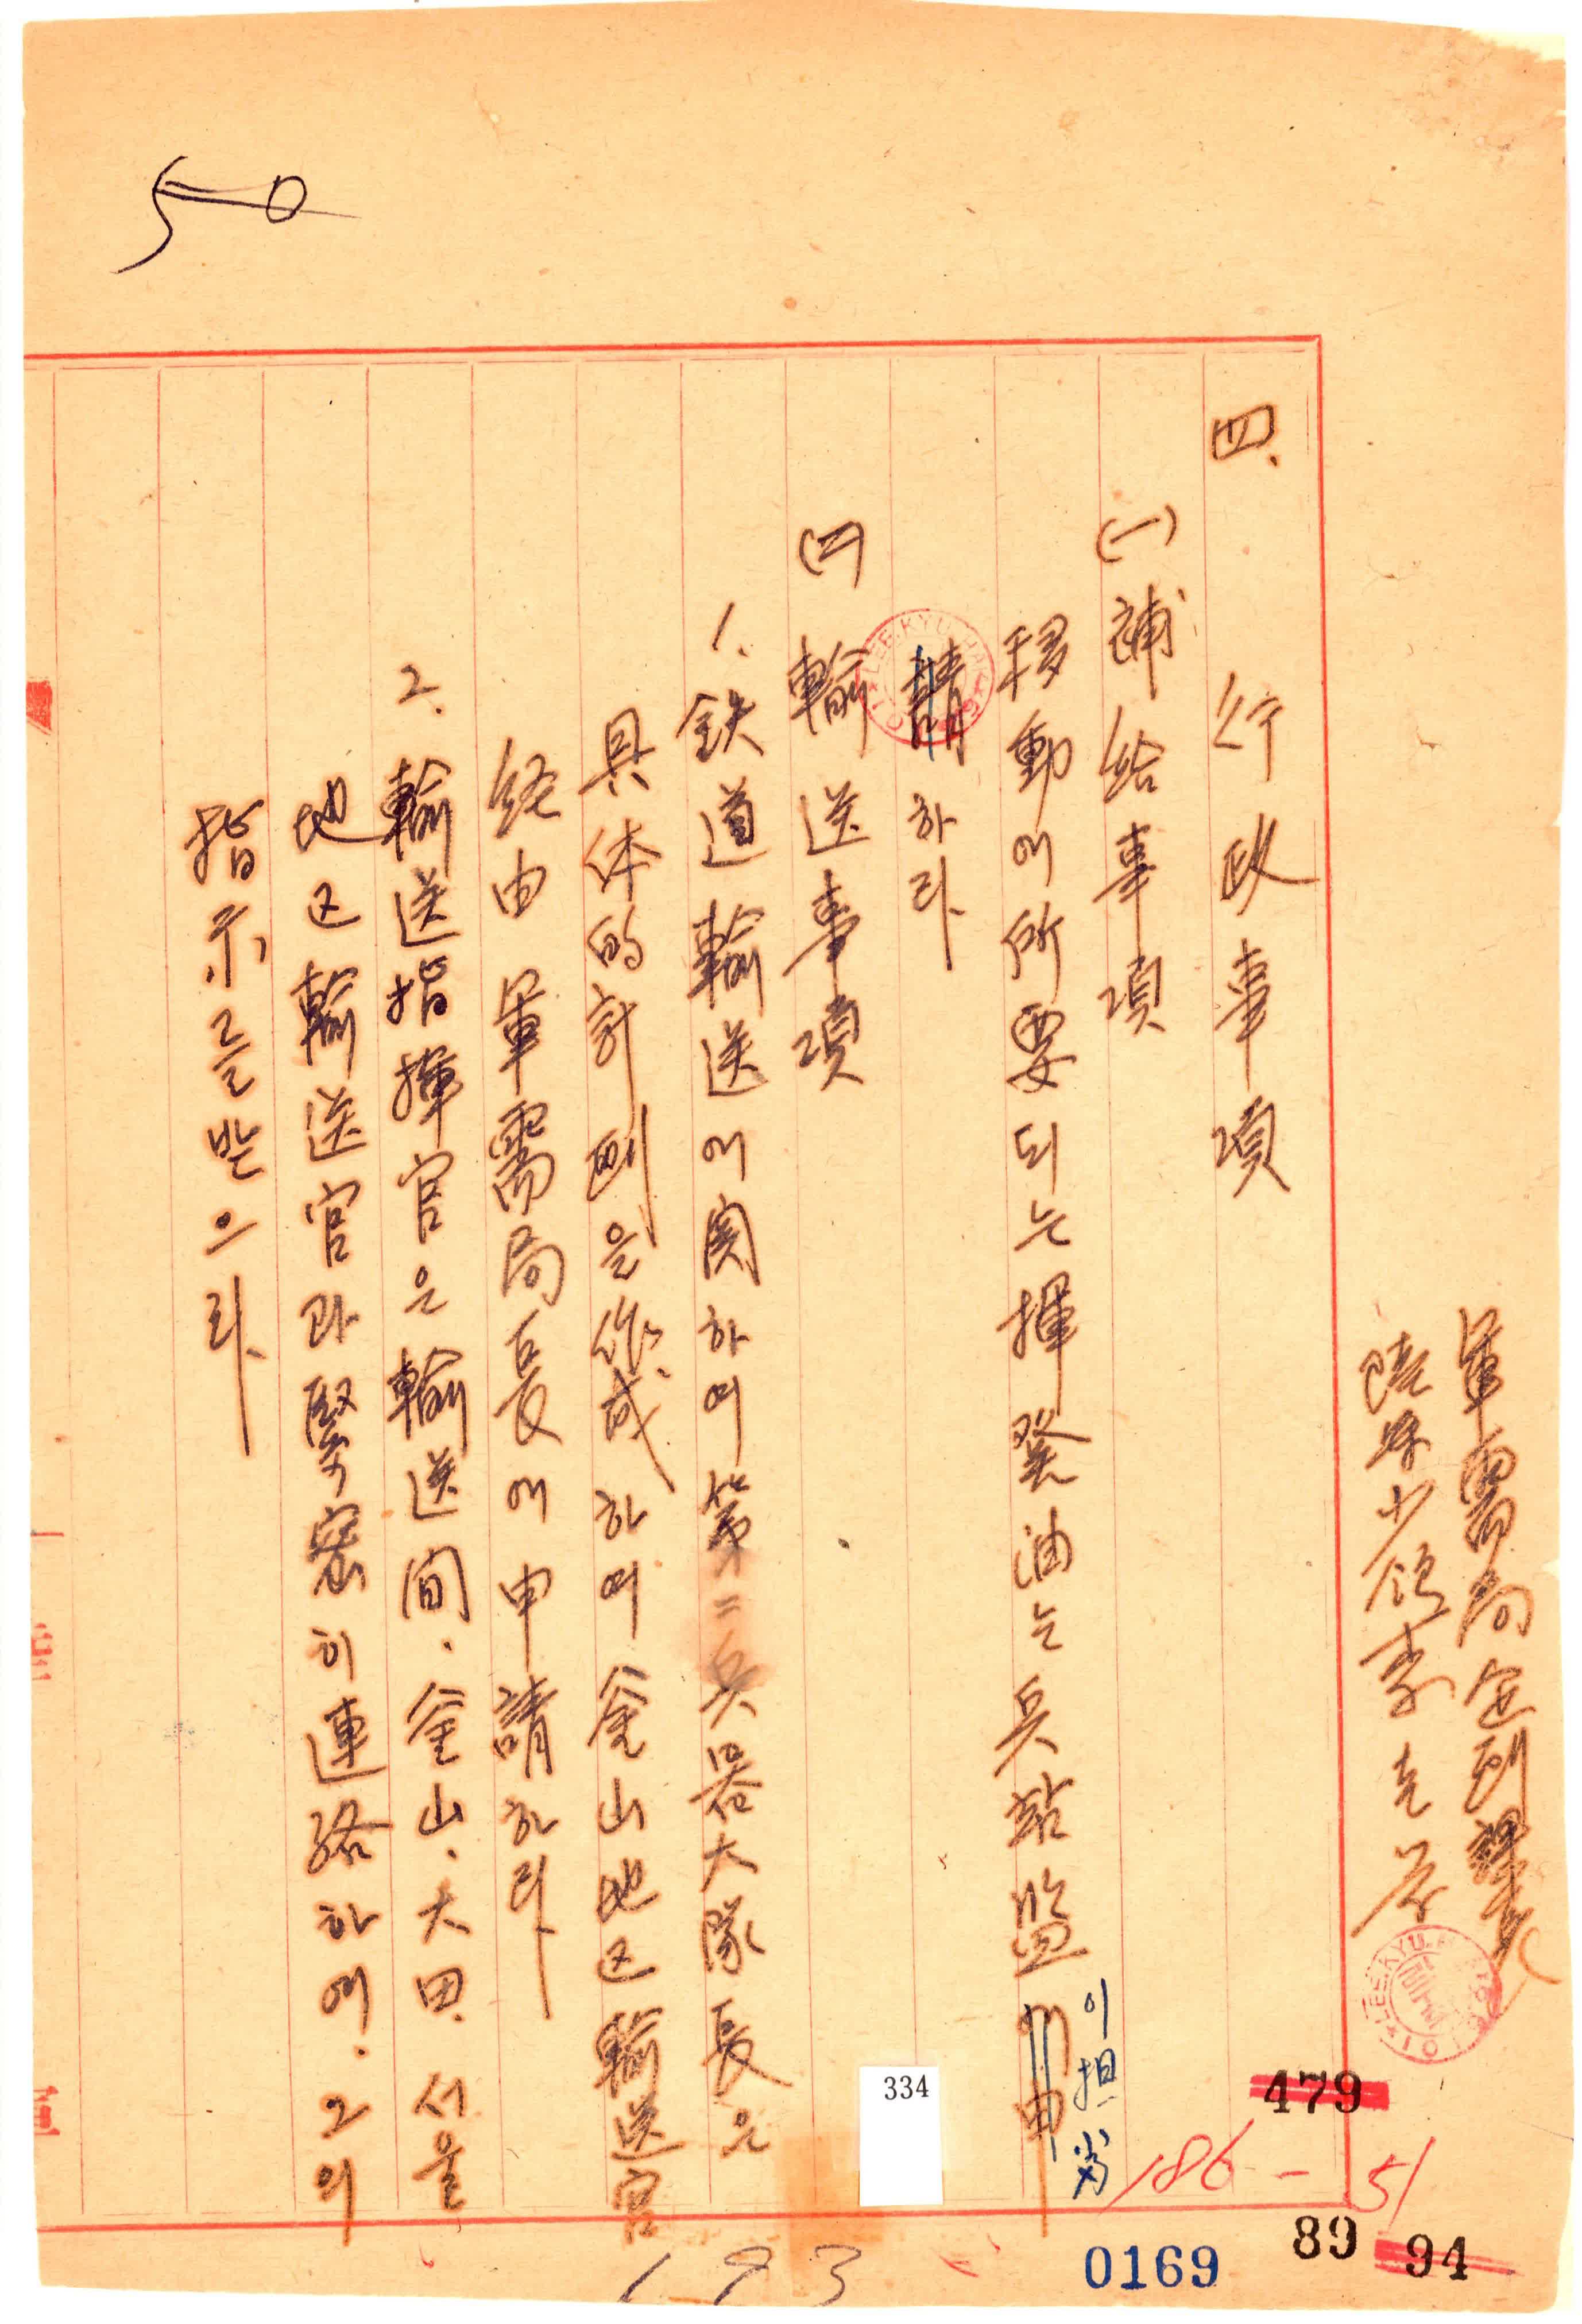 軍需局 企劃課長
陸軍少領 李
四. 行政事項
(一) 補給事項
移動에 所要되는 揮發油는 兵站監에 申
이 担当
請하라.
(二) 輸送事項
1. 鉄道輸送에 関하여 第二兵器大隊長은
具体的計劃을 作成하여 釜山地区輸送官
経由 軍需局長에 申請하라.
2. 輸送指揮官은 輸送間. 釜山. 大田. 서울
地区輸送官과 緊密히 連絡하여. 그의
指示를 받으라.
LEE.KYU.HAK
LEE.KYU.
334
479
186-51
89 94
0169
193